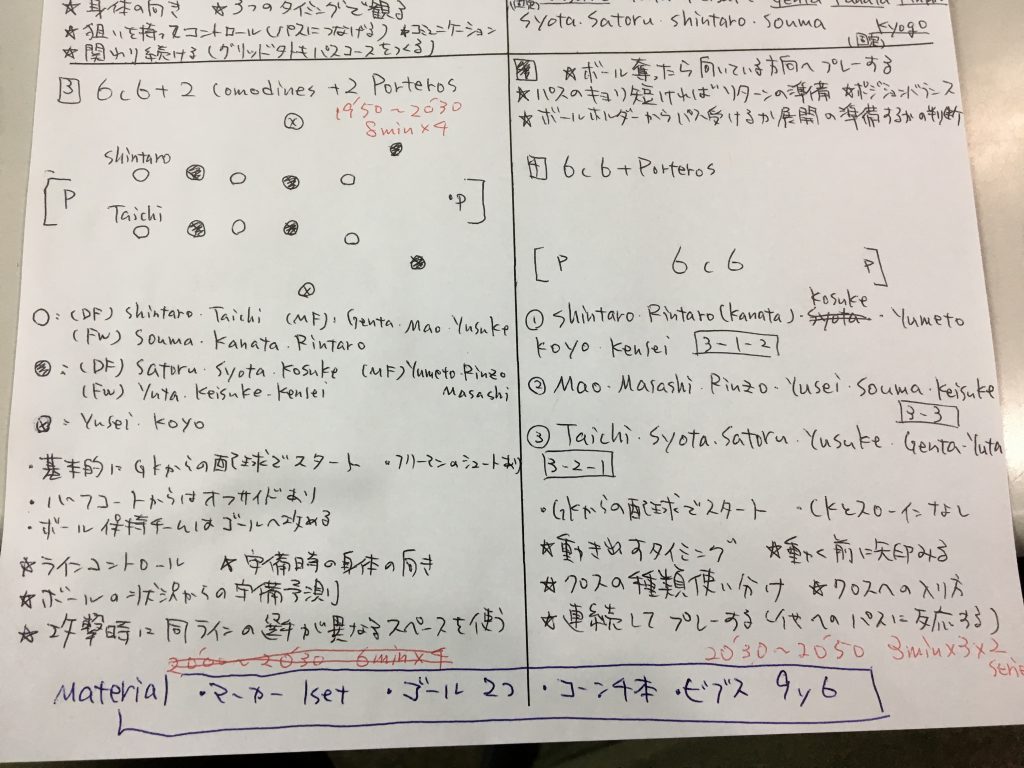 ★身体の向き ★3つのタイミングで観る
★狙いを持ってコントロール(パスにつなげる) ★コミュニケーション
★関わり続ける(グリッド外もパスコースをつくる)
3 6c6+2 Comodines +2 Porteros
19:50~20:30
8min×4
x
shintaro
P
Taichi
P
x
○:(DF) Shintaro・Taichi (MF):Genta・Mao・Yusuke
(FW) Souma・Kanata・Rintaro
:(DF) Satoru・Syota・Kosuke (MF) Yumeto・Rinzo
(FW) Yuta・Keisuke・Kensei Masashi
= Yusei・Koyo
・基本的にGKからの配球でスタート ・フリーマンのシュートあり
・ハーフコートからはオフサイドあり
・ボール保持チームはゴールへ攻める
★ラインコントロール ★守備時の身体の向き
★ボールの状況からの守備予測
★攻撃時に同ラインの選手が異なるスペースを使う
20:00~20:30 6min×4
Syota・Satoru・Shintaro・Souma
Kyogo
★ボール奪ったら向いている方向へプレーする
★パスのキョリ短ければリターンの準備 ★ポジションバランス
★ボールホルダーからパス受けるか展開の準備するかの判断
4 6c6+Porteros
P 6c6 P
① Shintaro・Rintaro(Kanata)・Syota・Yumeto
Kosuke
Koyo・Kensei 3-1-2
② Mao・Masashi・Rinzo・Yusei・Souma・Keisuke
3-3
③ Taichi・Syota・Satoru・Yusuke・Genta・Yuta
3-2-1
・GKからの配球でスタート ・CKとスローインなし
★動き出すタイミング ★動く前に矢印みる
★クロスの種類使い分け ★クロスへの入り方
★連続してプレーする(他へのパスに反応する)
20:30~20:50 3min×3×2
serie
Material ・マーカー 1set ・ゴール 2つ ・コーン4本 ・ビブス 9y6